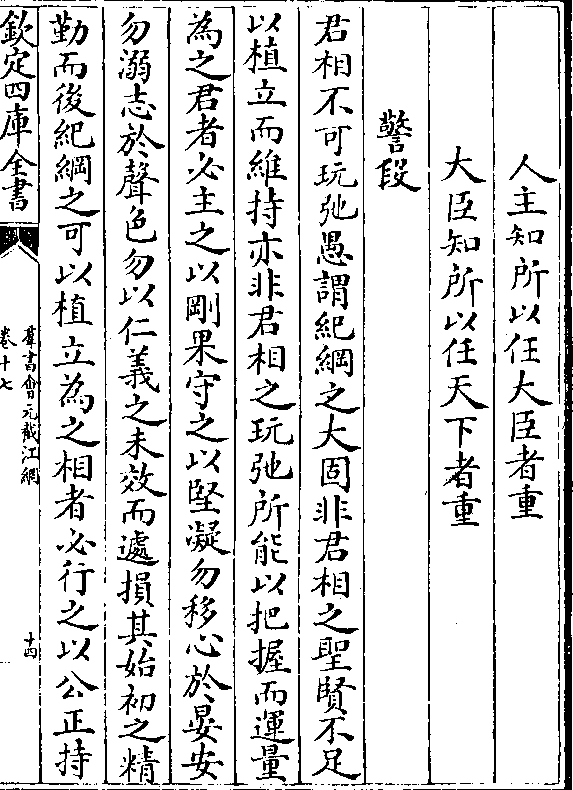 人主知所以任大臣者重
大臣知所以任天下者重
警段
君相不可玩弛愚謂紀綱之大固非君相之聖賢不足
以植立而維持亦非君相之玩弛所能以把握而運量
為之君者必主之以剛果守之以堅凝勿移心於晏安
勿溺志於聲色勿以仁義之未效而遽損其始初之精
勤而後紀綱之可以植立為之相者必行之以公正持
欽定四庫全書
羣書會元截江網
卷十七
十四